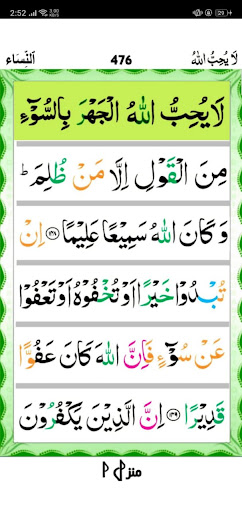 2:52 3.00 KB/s 29
لَا يُحِبُّ اللهُ 476 اَلنِّسَاء
لَا يُحِبُّ اللهُ الْجَهْرَ بِالسُّوْٓءِ
مِنَ الْقَوْلِ اِلَّا مَنْ ظُلِمَ ؕ
وَ كَانَ اللهُ سَمِيْعًا عَلِيْمًا ﴿۱۴۸﴾ اِنْ
تُبْدُوْا خَيْرًا اَوْ تُخْفُوْهُ اَوْ تَعْفُوْا
عَنْ سُوْٓءٍ فَاِنَّ اللهَ كَانَ عَفُوًّا
قَدِيْرًا ﴿۱۴۹﴾ اِنَّ الَّذِيْنَ يَكْفُرُوْنَ
منزل ۱